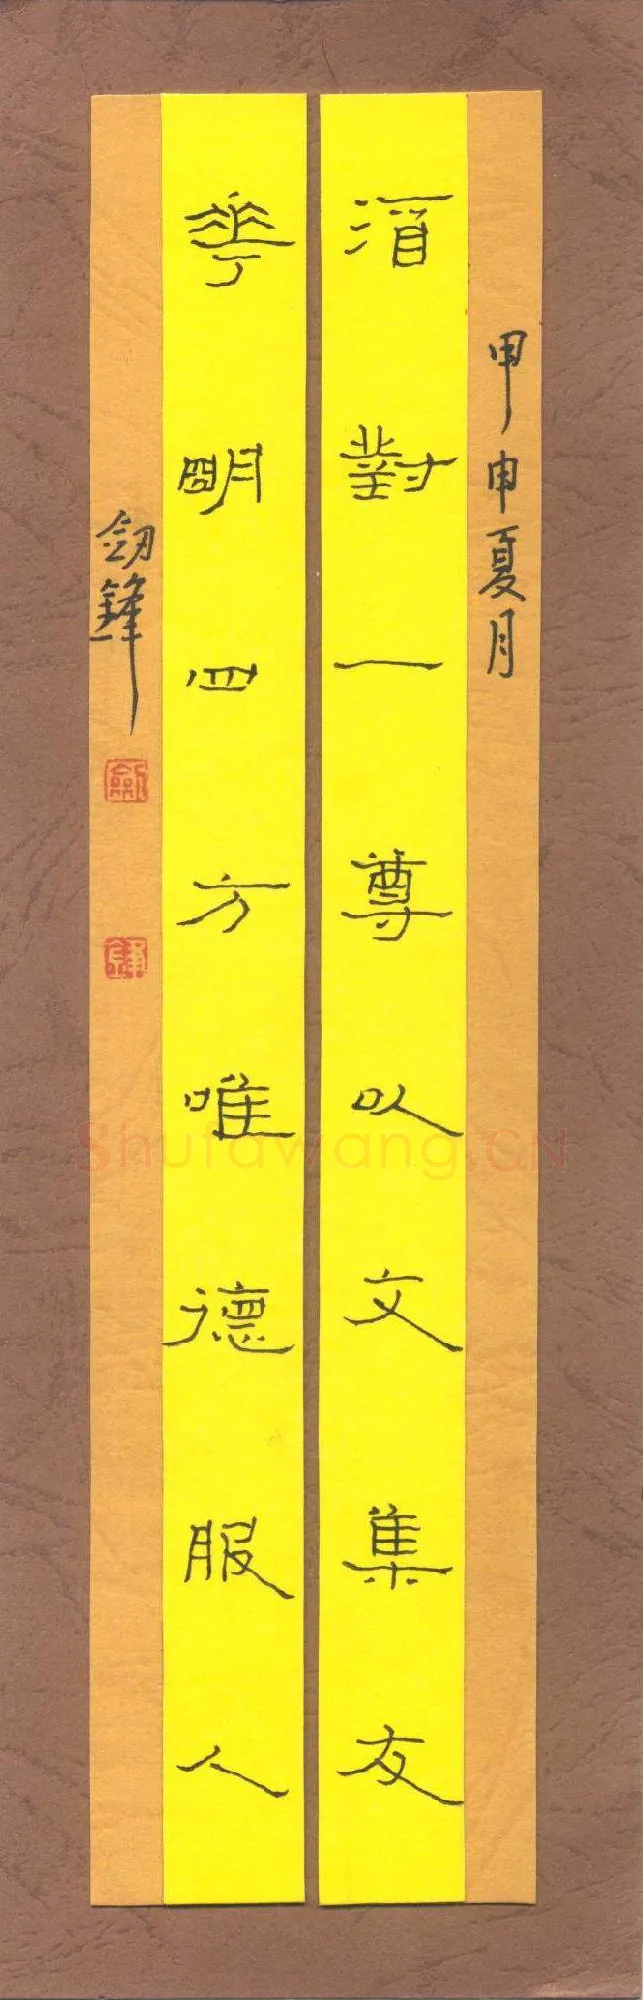 甲申夏月
酒對一尊以文集友
華明四方唯德服人
劍鋒
劍
鋒
Shufawang.CN